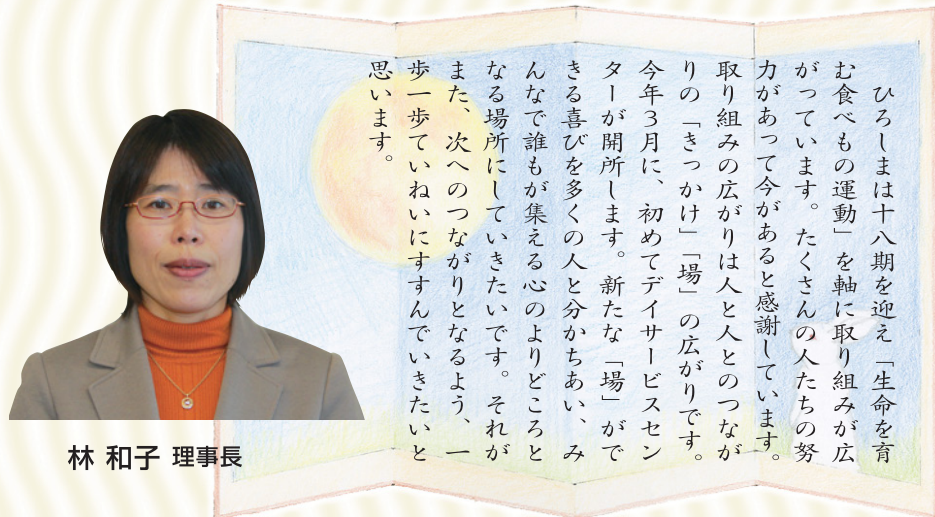 ひろしまは十八期を迎え「生命を育
む食べもの運動」を軸に取り組みが広
がっています。たくさんの人たちの努
力があって今があると感謝しています。
取り組みの広がりは人と人とのつなが
りの「きっかけ」「場」の広がりです。
今年３月に、初めてデイサービスセン
ターが開所します。新たな「場」がで
きる喜びを多くの人と分かちあい、み
んなで誰もが集える心のよりどころと
なる場所にしていきたいです。それが
また、次へのつながりとなるよう、一
歩一歩ていねいにすすんでいきたいと
思います。
林 和子 理事長